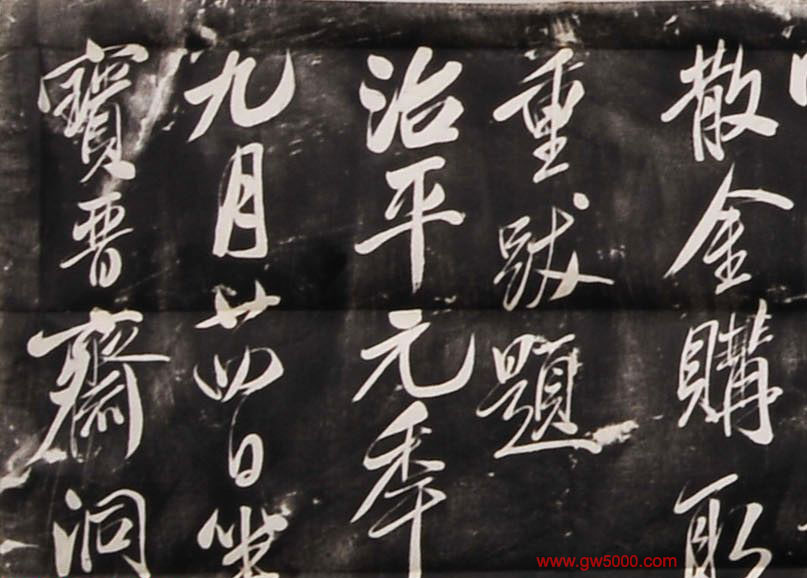 散金購取
重跋題
治平元秊
九月廿四日坐
寶晉齋洞
www.gw5000.com